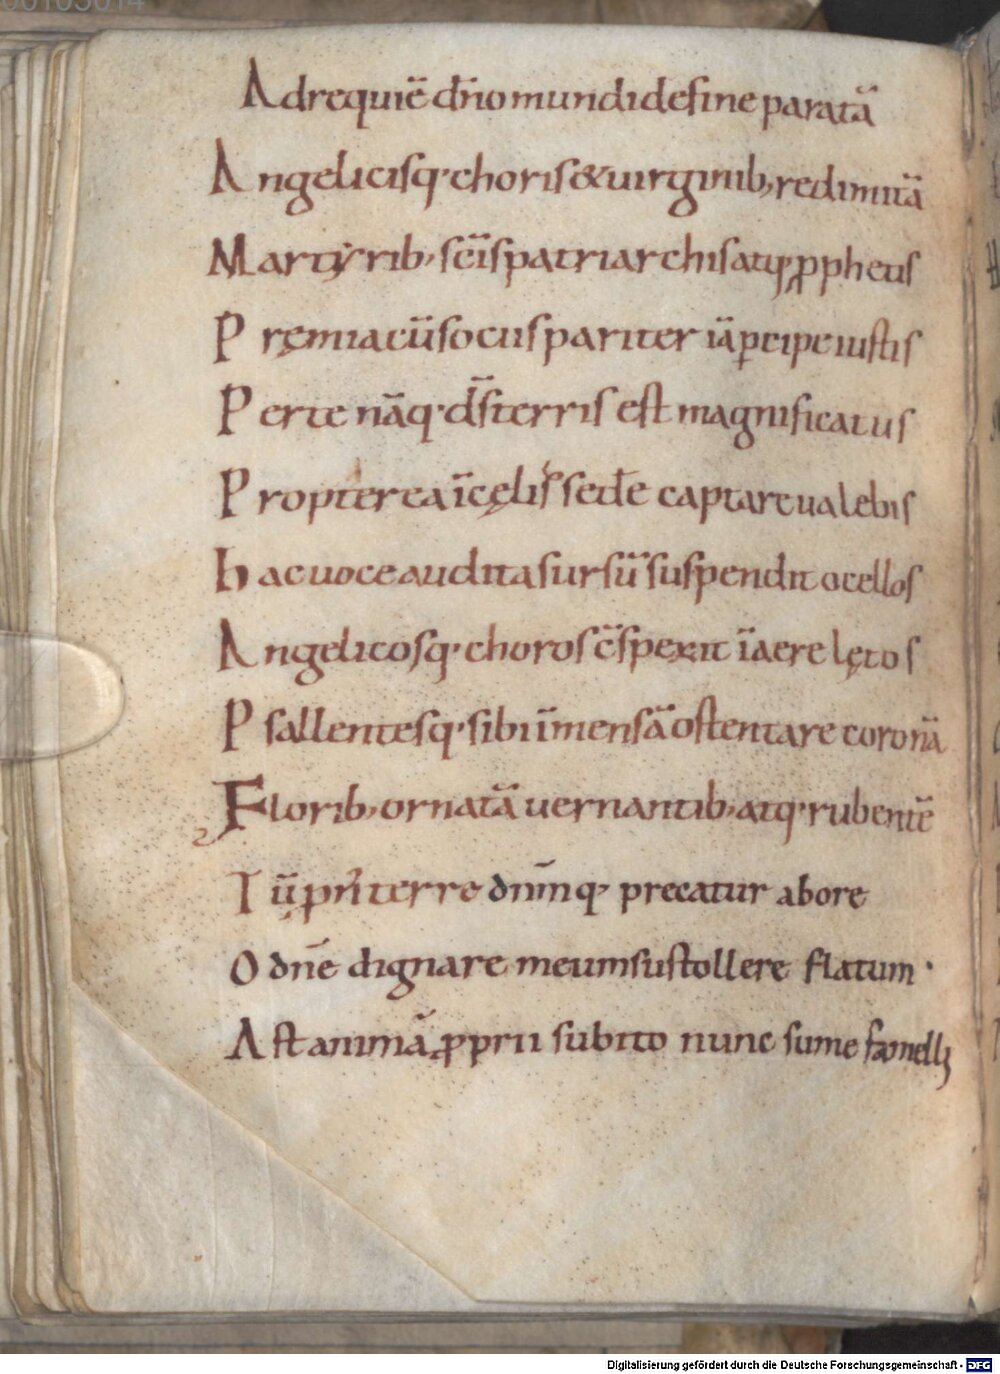 00105014
Adrequiē dn̄io mundi desine paratā
Angelicisq· choris & uirginib; redimitā
Martẏrib; sc̄is patriarchis atq; ꝓphetis
Pręmia cū sociis pariter iā ꝑcipe iustis
Per te nāq· ds̄ terris est magnificatus
Propterea ī cęlis sedē captare ualebis
Hac uoce audita sursū suspendit ocellos
Angelicosq· choros c̄spexit ī aere lętos
Psallentesq· sibi īmensā ostentare coronā
Florib; ornatā uernantib; atq· rubentē
Tū terre dnm̄q· precatur abore
O dn̄e dignare meum sustollere flatum ·
Ast animā ꝓprii subito nunc sume famelli
Digitalisierung gefördert durch die Deutsche Forschungsgemeinschaft - DFG